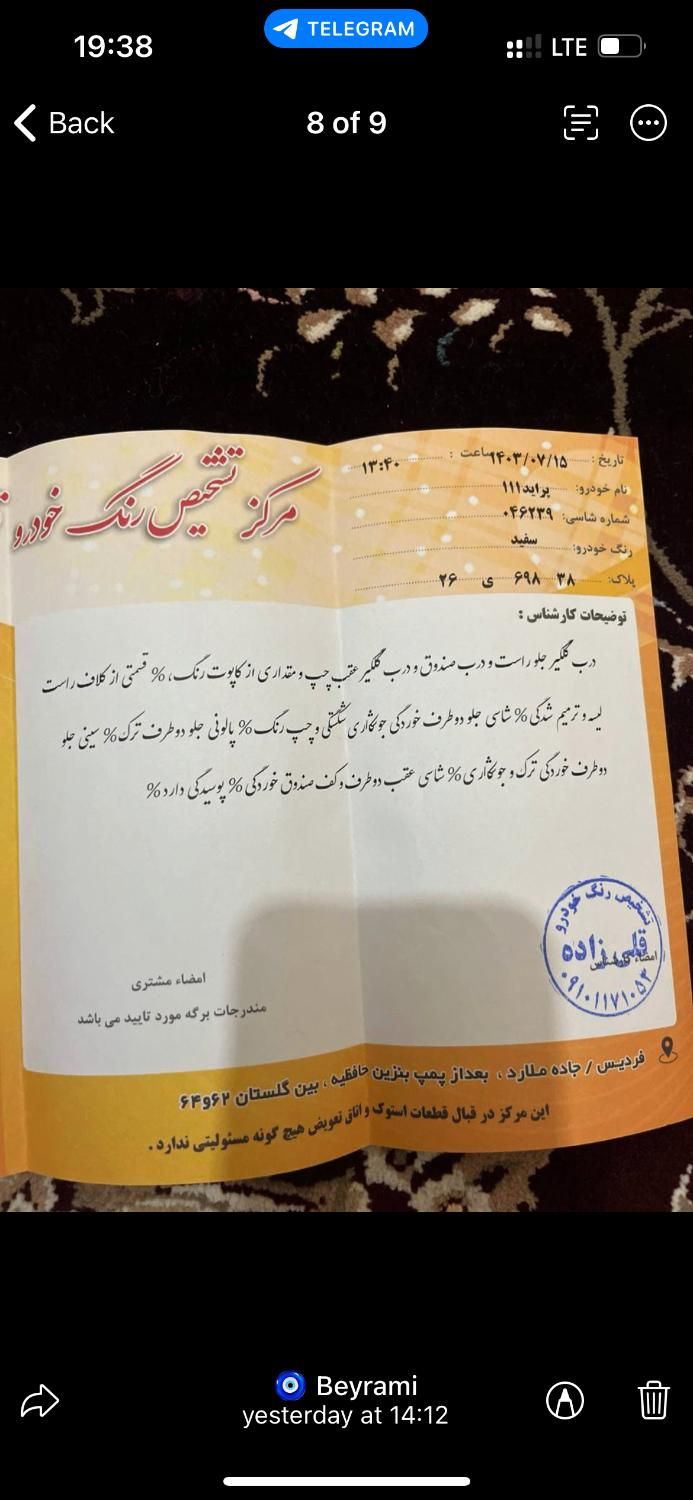 19:38
TELEGRAM
LTE
Back
8 of 9
مرکز تشخیص رنگ خودرو
تاریخ: ۱۴۰۳/۰۷/۱۵ ساعت: ۱۳:۴۰
نام خودرو: پراید۱۱۱
شماره شاسی: ۰۴۶۲۳۹
رنگ خودرو: سفید
پلاک: ۳۸ ۶۹۸ ی ۲۶
توضیحات کارشناس :
درب گلگیر جلو راست و درب صندوق و درب گلگیر عقب چپ و مقداری از کاپوت رنگ، % قسمتی از کلاف راست
لیسه و ترمیم شدگی % شاسی جلو دوطرف خوردگی جوشکاری شکستگی و چپ رنگ % پالونی جلو دوطرف ترک % سینی جلو
دوطرف خوردگی ترک و جوشکاری % شاسی عقب دوطرف وکف صندوق خوردگی % پوسیدگی دارد %
تشخیص رنگ خودرو
قلی زاده
۰۹۱۰۱۱۷۱۰۵۳
امضاء کارشناس
امضاء مشتری
مندرجات برگه مورد تایید می باشد
فردیس / جاده ملارد ، بعداز پمپ بنزین حافظیه ، بین گلستان ۶۲و۶۴
این مرکز در قبال قطعات استوک و اتاق تعویض هیچ گونه مسئولیتی ندارد .
Beyrami
yesterday at 14:12